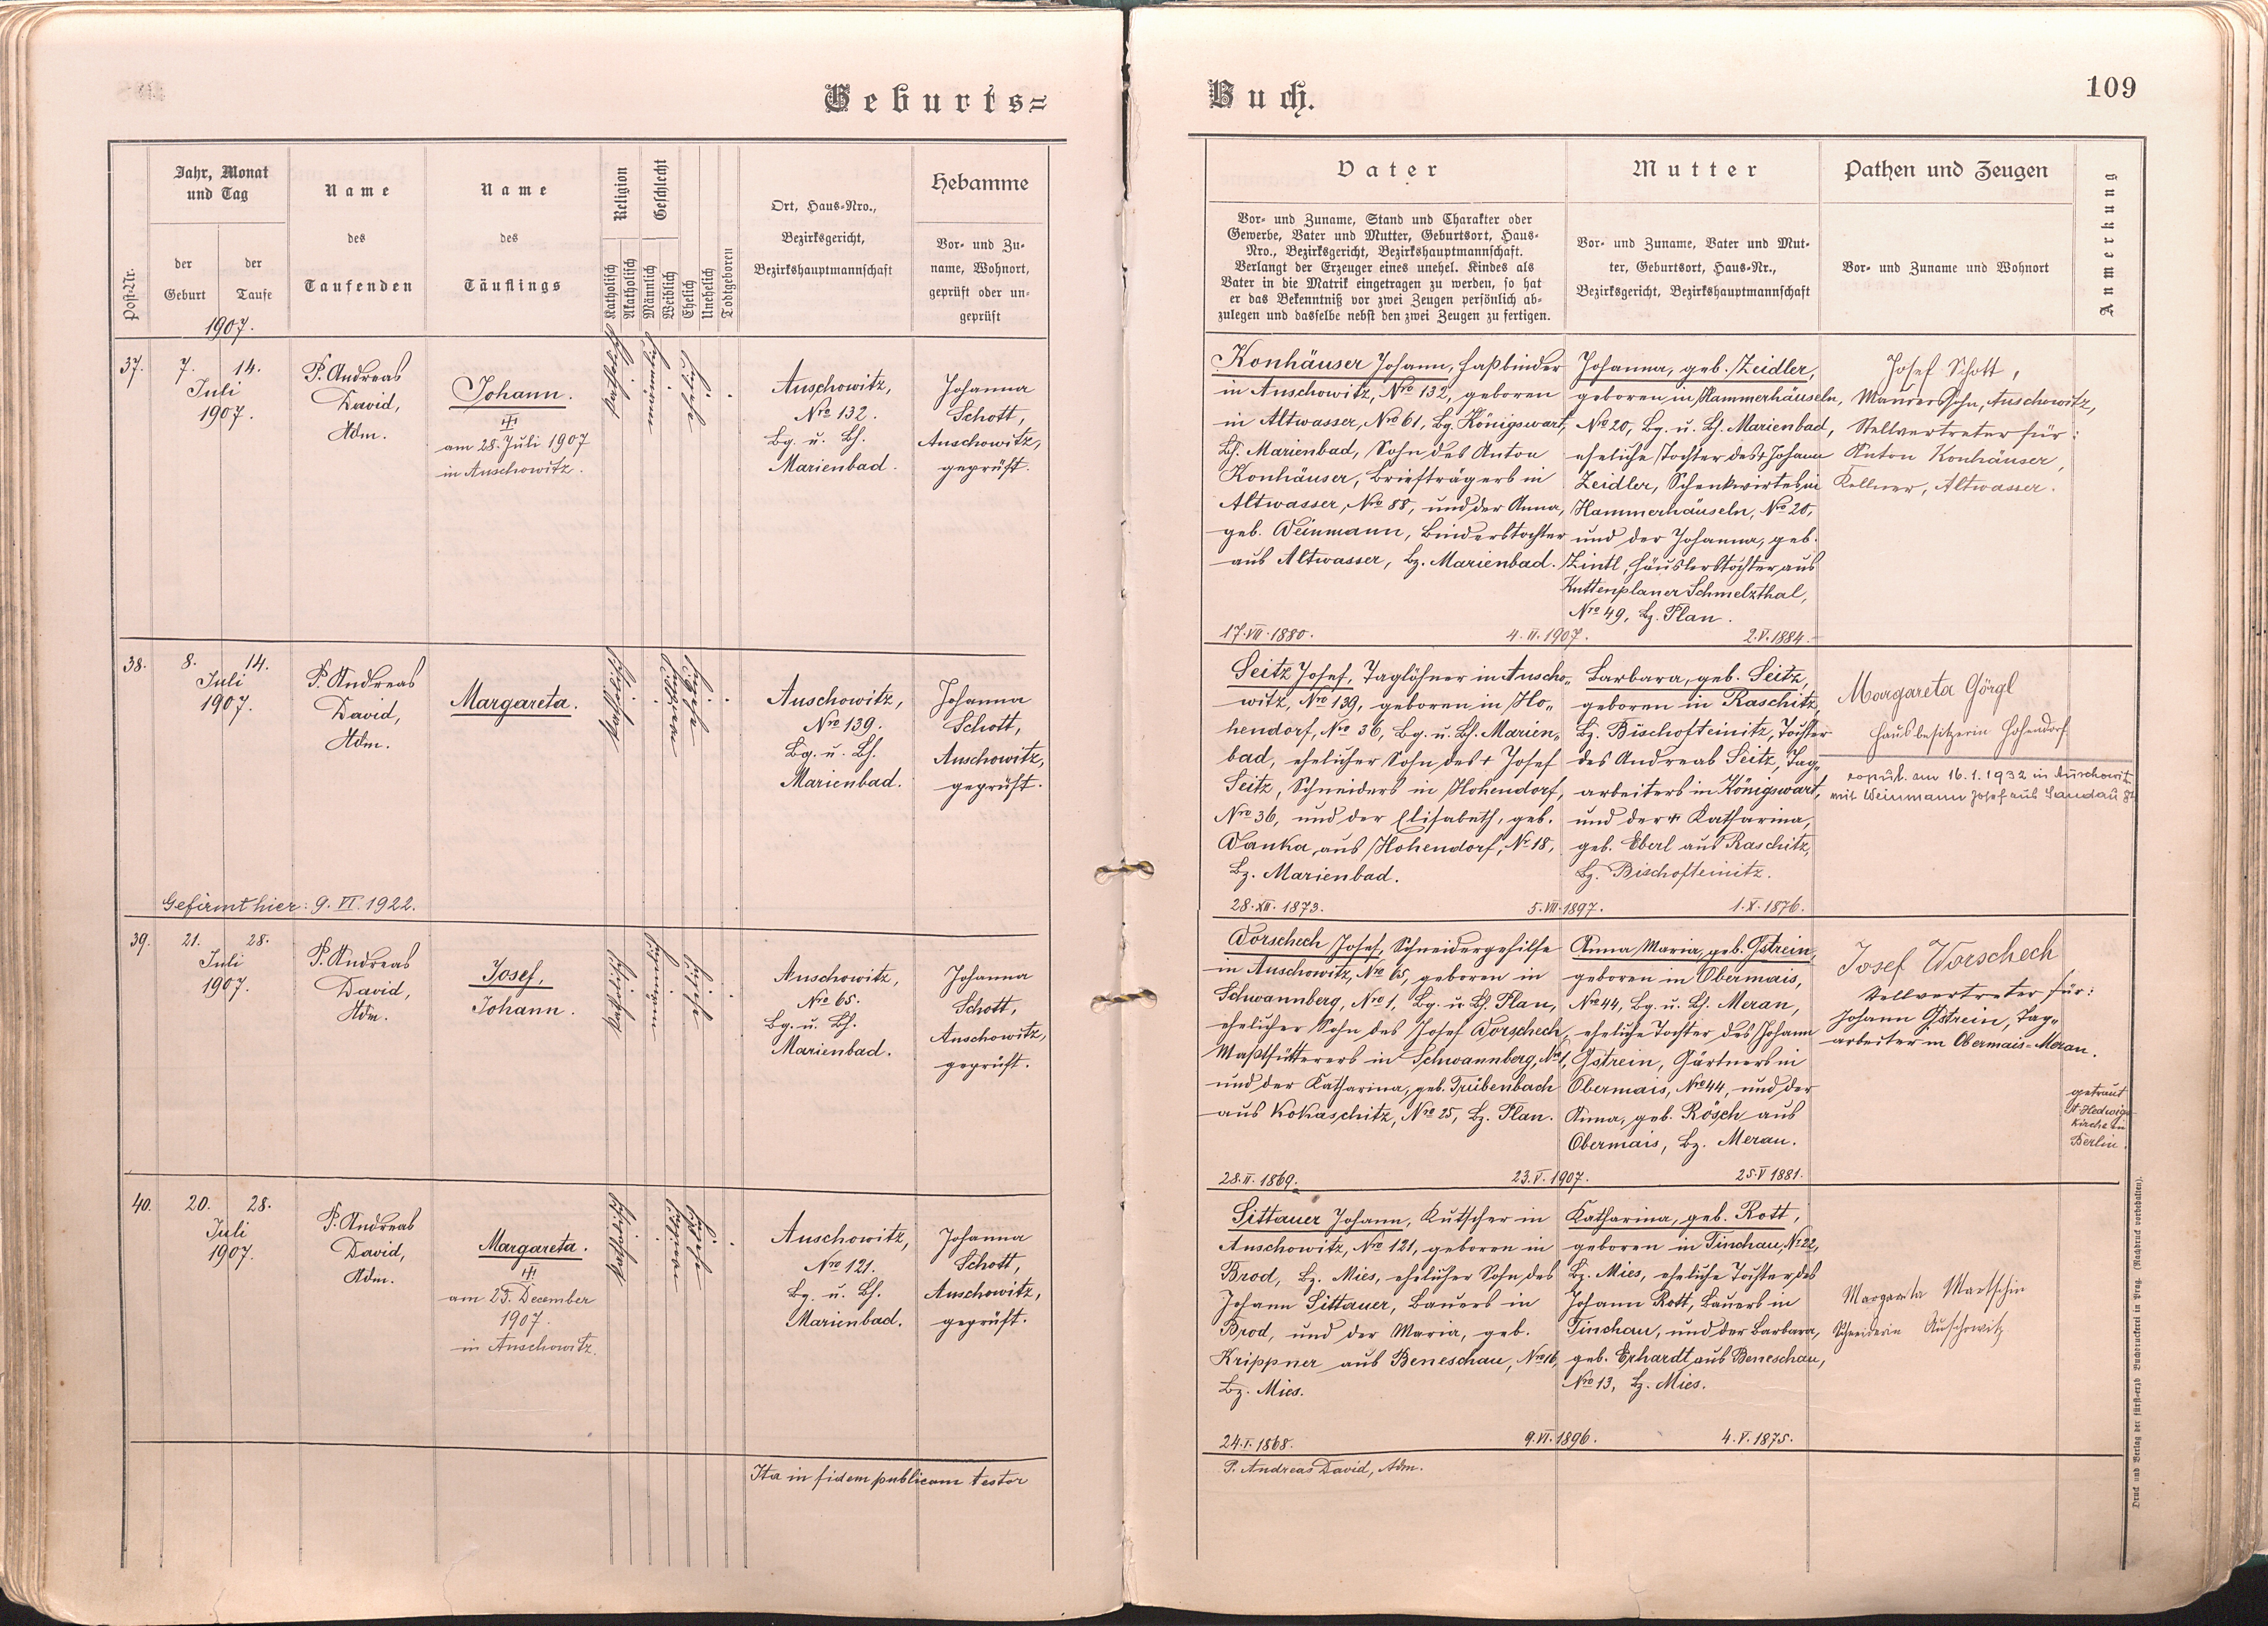 Geburts=
Buch.
109
Post-Nr.
Jahr, Monat
und Tag
der
Geburt
der
Taufe
1907.
Name
des
Taufenden
Name
des
Täuflings
Religion
Katholisch
Akatholisch
Geschlecht
Männlich
Weiblich
Ehelich
Unehelich
Todtgeboren
Ort, Haus-Nro.,
Bezirksgericht,
Bezirkshauptmannschaft
Hebamme
Vor- und Zu-
name, Wohnort,
geprüft oder un-
geprüft
Vater
Vor- und Zuname, Stand und Charakter oder
Gewerbe, Vater und Mutter, Geburtsort, Haus-
Nro., Bezirksgericht, Bezirkshauptmannschaft.
Verlangt der Erzeuger eines unehel. Kindes als
Vater in die Matrik eingetragen zu werden, so hat
er das Bekenntniß vor zwei Zeugen persönlich ab-
zulegen und dasselbe nebst den zwei Zeugen zu fertigen.
Mutter
Vor- und Zuname, Vater und Mut-
ter, Geburtsort, Haus-Nr.,
Bezirksgericht, Bezirkshauptmannschaft
Pathen und Zeugen
Vor- und Zuname und Wohnort
Anmerkung
37.
7. 14.
Juli
1907.
P. Andreas
David,
Adm.
Johann.
am 28. Juli 1907
in Auschowitz.
katholisch
männlich
ehelich
Auschowitz,
Nro 132.
Bg. u. Bh.
Marienbad.
Johanna
Schott,
Auschowitz,
geprüft.
Konhäuser Johann, Faßbinder
in Auschowitz, Nro 132, geboren
in Altwasser, Nro 61, Bg. Königswart,
Bh. Marienbad, Sohn des Anton
Konhäuser, Briefträgers in
Altwasser, Nro 88, und der Anna,
geb. Weinmann, Binderstochter
aus Altwasser, Bz. Marienbad.
17.VII.1880.
4.II.1907.
Johanna, geb. Zeidler,
geboren in Hammerhäuseln,
Nro 20, Bg. u. Bh. Marienbad,
eheliche Tochter des † Johann
Zeidler, Schenkwirtes in
Hammerhäuseln, Nro 20,
und der Johanna, geb.
Zintl, Häuslerstochter aus
Kuttenplaner Schmelzthal,
Nro 49, Bz. Plan.
2.V.1884.
Josef Schott,
Maurerssohn, Auschowitz,
Stellvertreter für:
Anton Konhäuser,
Kellner, Altwasser.
38.
8. 14.
Juli
1907.
P. Andreas
David,
Adm.
Margareta.
katholisch
ehelich
Auschowitz,
Nro 139.
Bg. u. Bh.
Marienbad.
Johanna
Schott,
Auschowitz,
geprüft.
Gefirmt hier: 9. VI. 1922.
Seitz Josef, Taglöhner in Auscho-
witz, Nro 139, geboren in Ho-
hendorf, Nro 36, Bg. u. Bh. Marien-
bad, ehelicher Sohn des † Josef
Seitz, Schneiders in Hohendorf,
Nro 36, und der Elisabeth, geb.
Wanka, aus Hohendorf, Nr 18,
Bz. Marienbad.
28.XII.1873.
5.VII.1897.
Barbara, geb. Seitz,
geboren in Raschitz,
Bz. Bischofteinitz, Tochter
des Andreas Seitz, Tag-
arbeiters in Königswart,
und der † Katharina,
geb. Eberl aus Raschitz,
Bz. Bischofteinitz.
1.X.1876.
Margareta Görgl
Hausbesitzerin Hohendorf
copul. am 16.1.1932 in Auschowitz
mit Weinmann Josef aus Sandau
39.
21. 28.
Juli
1907.
P. Andreas
David,
Adm.
Josef,
Johann.
katholisch
männlich
ehelich
Auschowitz,
Nro 65.
Bg. u. Bh.
Marienbad.
Johanna
Schott,
Auschowitz,
geprüft.
Worschech Josef, Schneidergehilfe
in Auschowitz, Nro 65, geboren in
Schwannberg, Nro 1, Bg. u. Bh. Plan,
ehelicher Sohn des Josef Worschech,
Mastfütterers in Schwannberg, Nro 1,
und der Katharina, geb. Trübenbach
aus Kokaschitz, Nro 25, Bz. Plan.
28.II.1869.
23.V.1907.
Anna Maria, geb. Gstrein,
geboren in Obermais,
Nro 44, Bg. u. Bh. Meran,
eheliche Tochter des Johann
Gstrein, Gärtners in
Obermais, Nro 44, und der
Anna, geb. Rösch aus
Obermais, Bz. Meran.
25.V.1881.
Josef Worschech
Stellvertreter für:
Johann Gstrein, Tag-
arbeiter in Obermais-Meran.
getraut
St Hedwigs
Kirche in
Berlin.
40.
20. 28.
Juli
1907.
P. Andreas
David,
Adm.
Margareta.
am 25. December
1907.
in Auschowitz.
katholisch
ehelich
Auschowitz,
Nro 121.
Bg. u. Bh.
Marienbad.
Johanna
Schott,
Auschowitz,
geprüft.
Sittauer Johann, Kutscher in
Auschowitz, Nro 121, geboren in
Brod, Bz. Mies, ehelicher Sohn des
Johann Sittauer, Bauers in
Brod, und der Maria, geb.
Krippner aus Beneschau, Nro 16,
Bz. Mies.
24.I.1868.
9.VI.1896.
Katharina, geb. Rott,
geboren in Tinchau, Nr 22,
Bz. Mies, eheliche Tochter des
Johann Rott, Bauers in
Tinchau, und der Barbara,
geb. Erhardt aus Beneschau,
Nro 13, Bz. Mies.
4.V.1875.
Margareta Martschin
Schneiderin Auschowitz
Ita in fidem publicam testor
P. Andreas David, Adm.
Druck und Verlag der fürst-erzb Buchdruckerei in Prag. (Nachdruck vorbehalten).